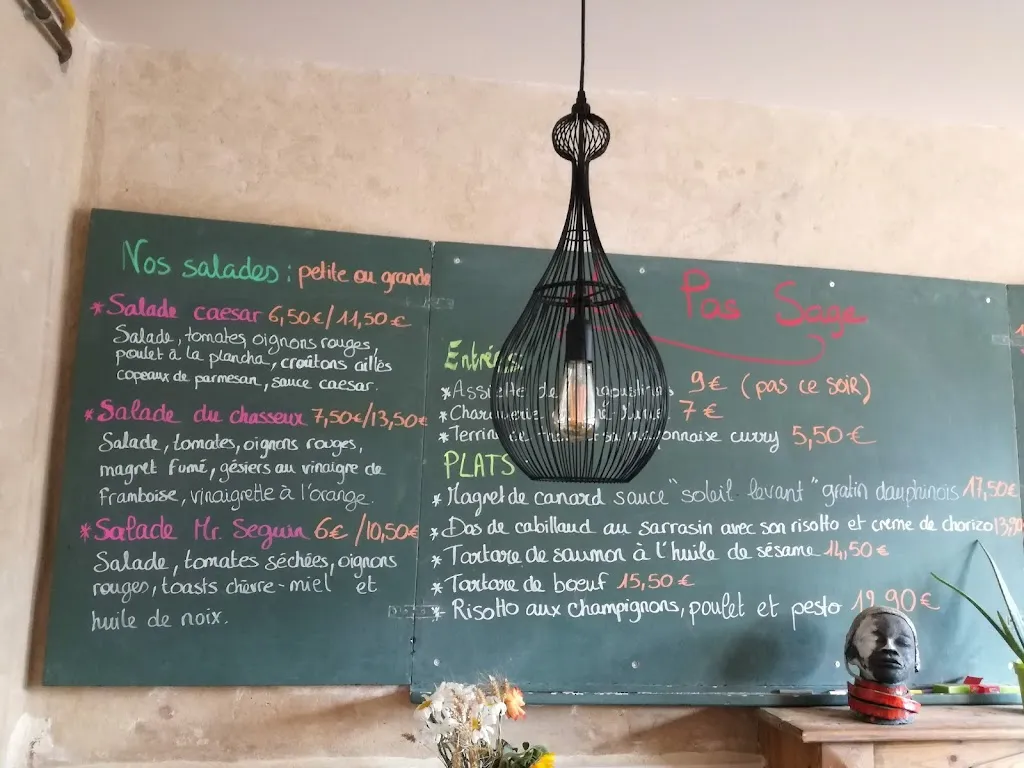 Nos salades : petite ou grande
* Salade caesar 6,50€/11,50€
Salade, tomates, oignons rouges,
poulet à la plancha, croûtons aillés
copeaux de parmesan, sauce caesar.
* Salade du chasseur 7,50€/13,50€
Salade, tomates, oignons rouges,
magret fumé, gésiers au vinaigre de
framboise, vinaigrette à l'orange.
* Salade Mr. Seguin 6€/10,50€
Salade, tomates séchées, oignons
rouges, toasts chèvre-miel et
huile de noix.
Pas Sage
Entrées
* Assiette de 9€ (pas ce soir)
* 7€
* curry 5,50€
PLATS
* Magret de canard sauce "soleil levant" gratin dauphinois 17,50€
* Dos de cabillaud au sarrasin avec son risotto et creme de chorizo
* Tartare de saumon à l'huile de sésame 14,50€
* Tartare de bœuf 15,50€
* Risotto aux champignons, poulet et pesto